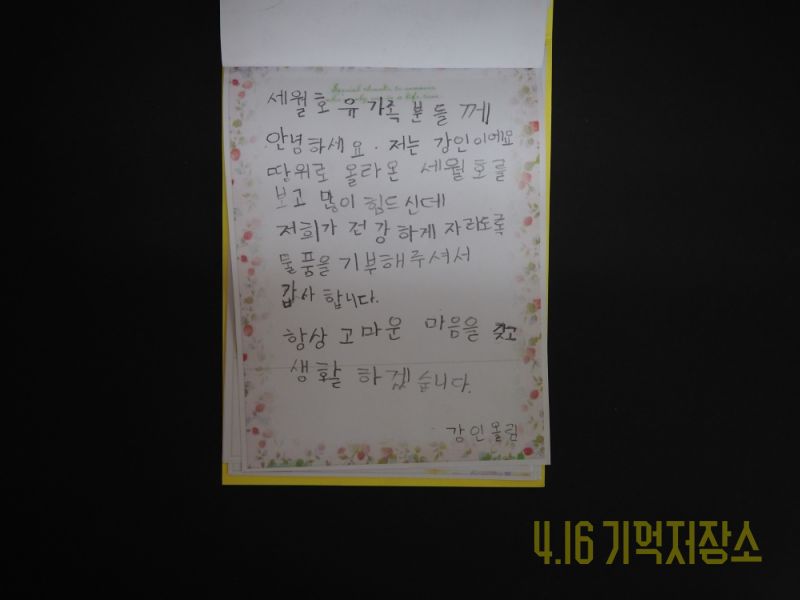 세월호 유가족 분들 께
안녕하세요. 저는 강인이에요
땅위로 올라온 세월호를
보고 많이 힘드신데
저희가 건강하게 자라도록
물품을 기부해주셔서
감사 합니다.
항상 고마운 마음을 갖고
생활 하겠습니다.
강인올림
4.16 기억저장소